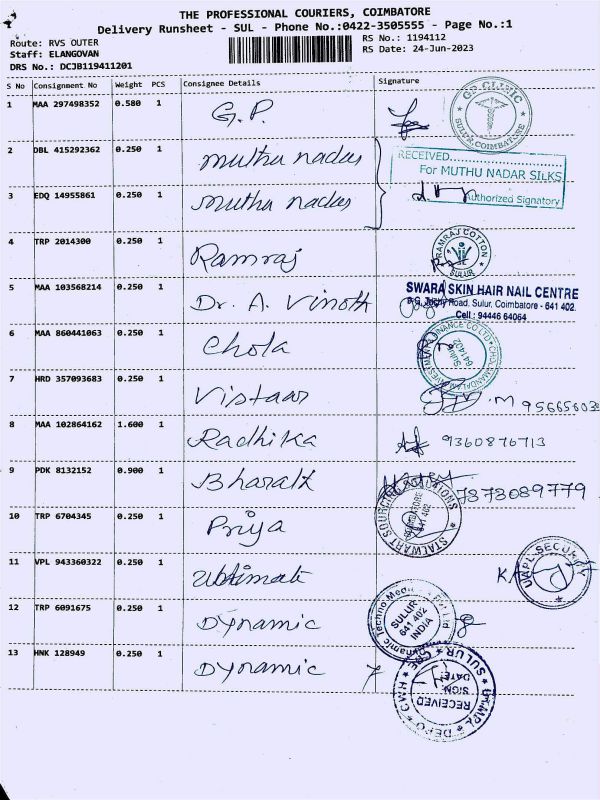 THE PROFESSIONAL COURIERS, COIMBATORE
Delivery Runsheet - SUL - Phone No.:0422-3505555 - Page No.:1
Route: RVS OUTER
RS No.: 1194112
Staff: ELANGOVAN
RS Date: 24-Jun-2023
DRS No.: DCJB119411201
S No Consignment No Weight PCS Consignee Details Signature
1 MAA 297498352 0.580 1 G.P.
GS CLINIC SULUR, COIMBATORE
2 DBL 415292362 0.250 1 Muthu nadar
RECEIVED
For MUTHU NADAR SILKS
3 EDQ 14955861 0.250 1 Muthu nadar
Authorized Signatory
4 TRP 2014300 0.250 1 Ramraj
RAMRAJ COTTON SULUR
5 MAA 103568214 0.250 1 Dr. A. Vinoth
SWARA SKIN HAIR NAIL CENTRE
Road, Sulur, Coimbatore - 641 402.
Cell : 94446 64064
6 MAA 860441063 0.250 1 Chola
Sulur 641402
7 HRD 357093683 0.250 1 Vistaar
8 MAA 102864162 1.600 1 Radhika 9360876713
9 PDK 8132152 0.900 1 Bharath 7373089779
10 TRP 6704345 0.250 1 Priya
STALWART SOURCING SOLUTIONS COIMBATORE 641 402
11 VPL 943360322 0.250 1 Ultimate
UAPL SECURITY
12 TRP 6091675 0.250 1 Dynamic
SULUR 641 402 INDIA
13 HNK 128949 0.250 1 Dynamic
SULUR
DATE:
SIGN:
RECEIVED